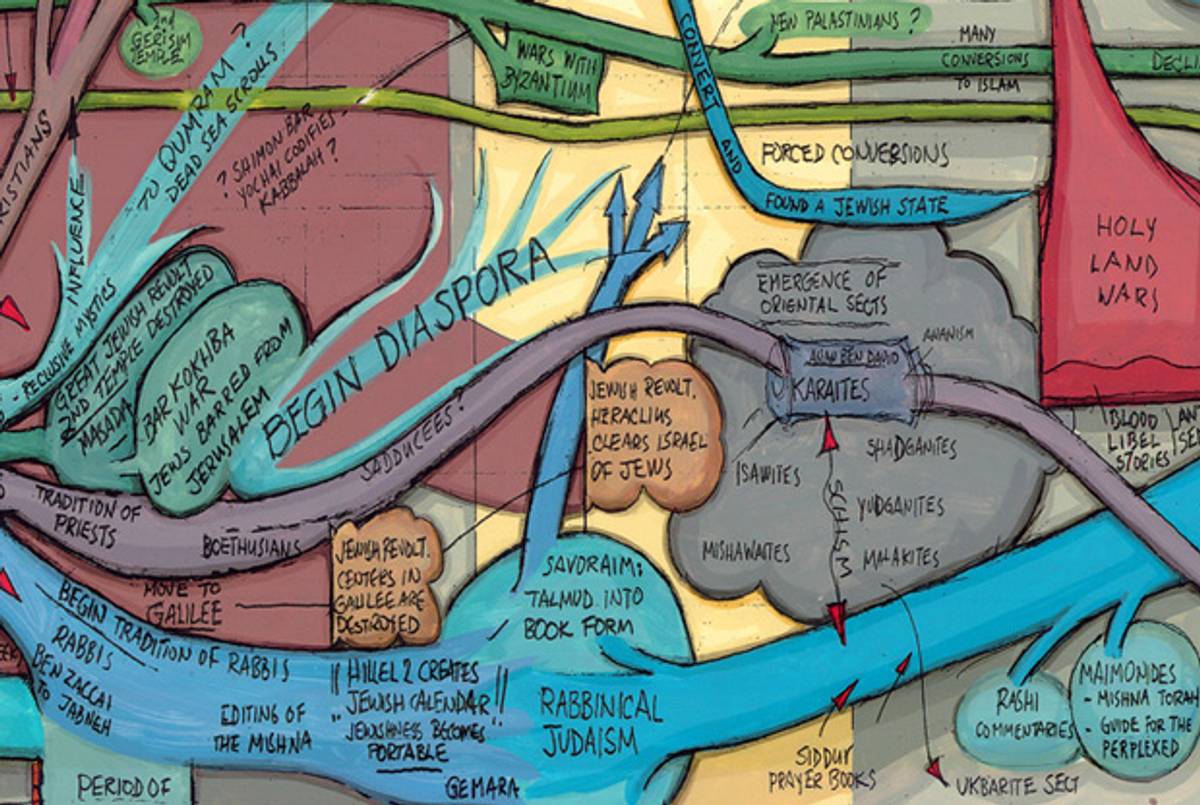 2nd
GERISIM
TEMPLE
WARS WITH
BYZANTIUM
NEW PALASTINIANS ?
MANY
CONVERSIONS
TO ISLAM
TO QUMRAM ?
DEAD SEA SCROLLS
? SHIMON BAR
YOCHAI CODIFIES
KABBALAH ?
CONVERT AND
FOUND A JEWISH STATE
FORCED CONVERSIONS
HOLY
LAND
WARS
INFLUENCE
- RECLUSIVE MYSTICS
GREAT JEWISH REVOLT
2ND TEMPLE DESTROYED
MASADA
BAR KOKHBA
WAR
JEWS BARRED FROM
JERUSALEM
BEGIN DIASPORA
EMERGENCE OF
ORIENTAL SECTS
ANAN BEN DAVID
KARAITES
ANANISM
JEWISH REVOLT.
HERACLIUS
CLEARS ISRAEL
OF JEWS
SADDUCEES ?
ISAWITES
SHADGANITES
YUDGANITES
MISHAWAITES
MALAKITES
SCHISM
BLOOD
LIBEL
STORIES
TRADITION OF
PRIESTS
BOETHUSIANS
MOVE TO
GALILEE
JEWISH REVOLT.
CENTERS IN
GALILEE ARE
DESTROYED
SAVORAIM:
TALMUD INTO
BOOK FORM
BEGIN TRADITION OF RABBIS
RABBIS
BEN ZACCAI
TO JABNEH
EDITING OF
THE MISHNA
HILLEL 2 CREATES
JEWISH CALENDAR
"JEWISHNESS BECOMES"
PORTABLE
GEMARA
RABBINICAL
JUDAISM
SIDDUR
PRAYER BOOKS
UKBARITE SECT
RASHI
COMMENTARIES
MAIMONIDES
- MISHNA TORAH
- GUIDE FOR THE
PERPLEXED
PERIOD OF